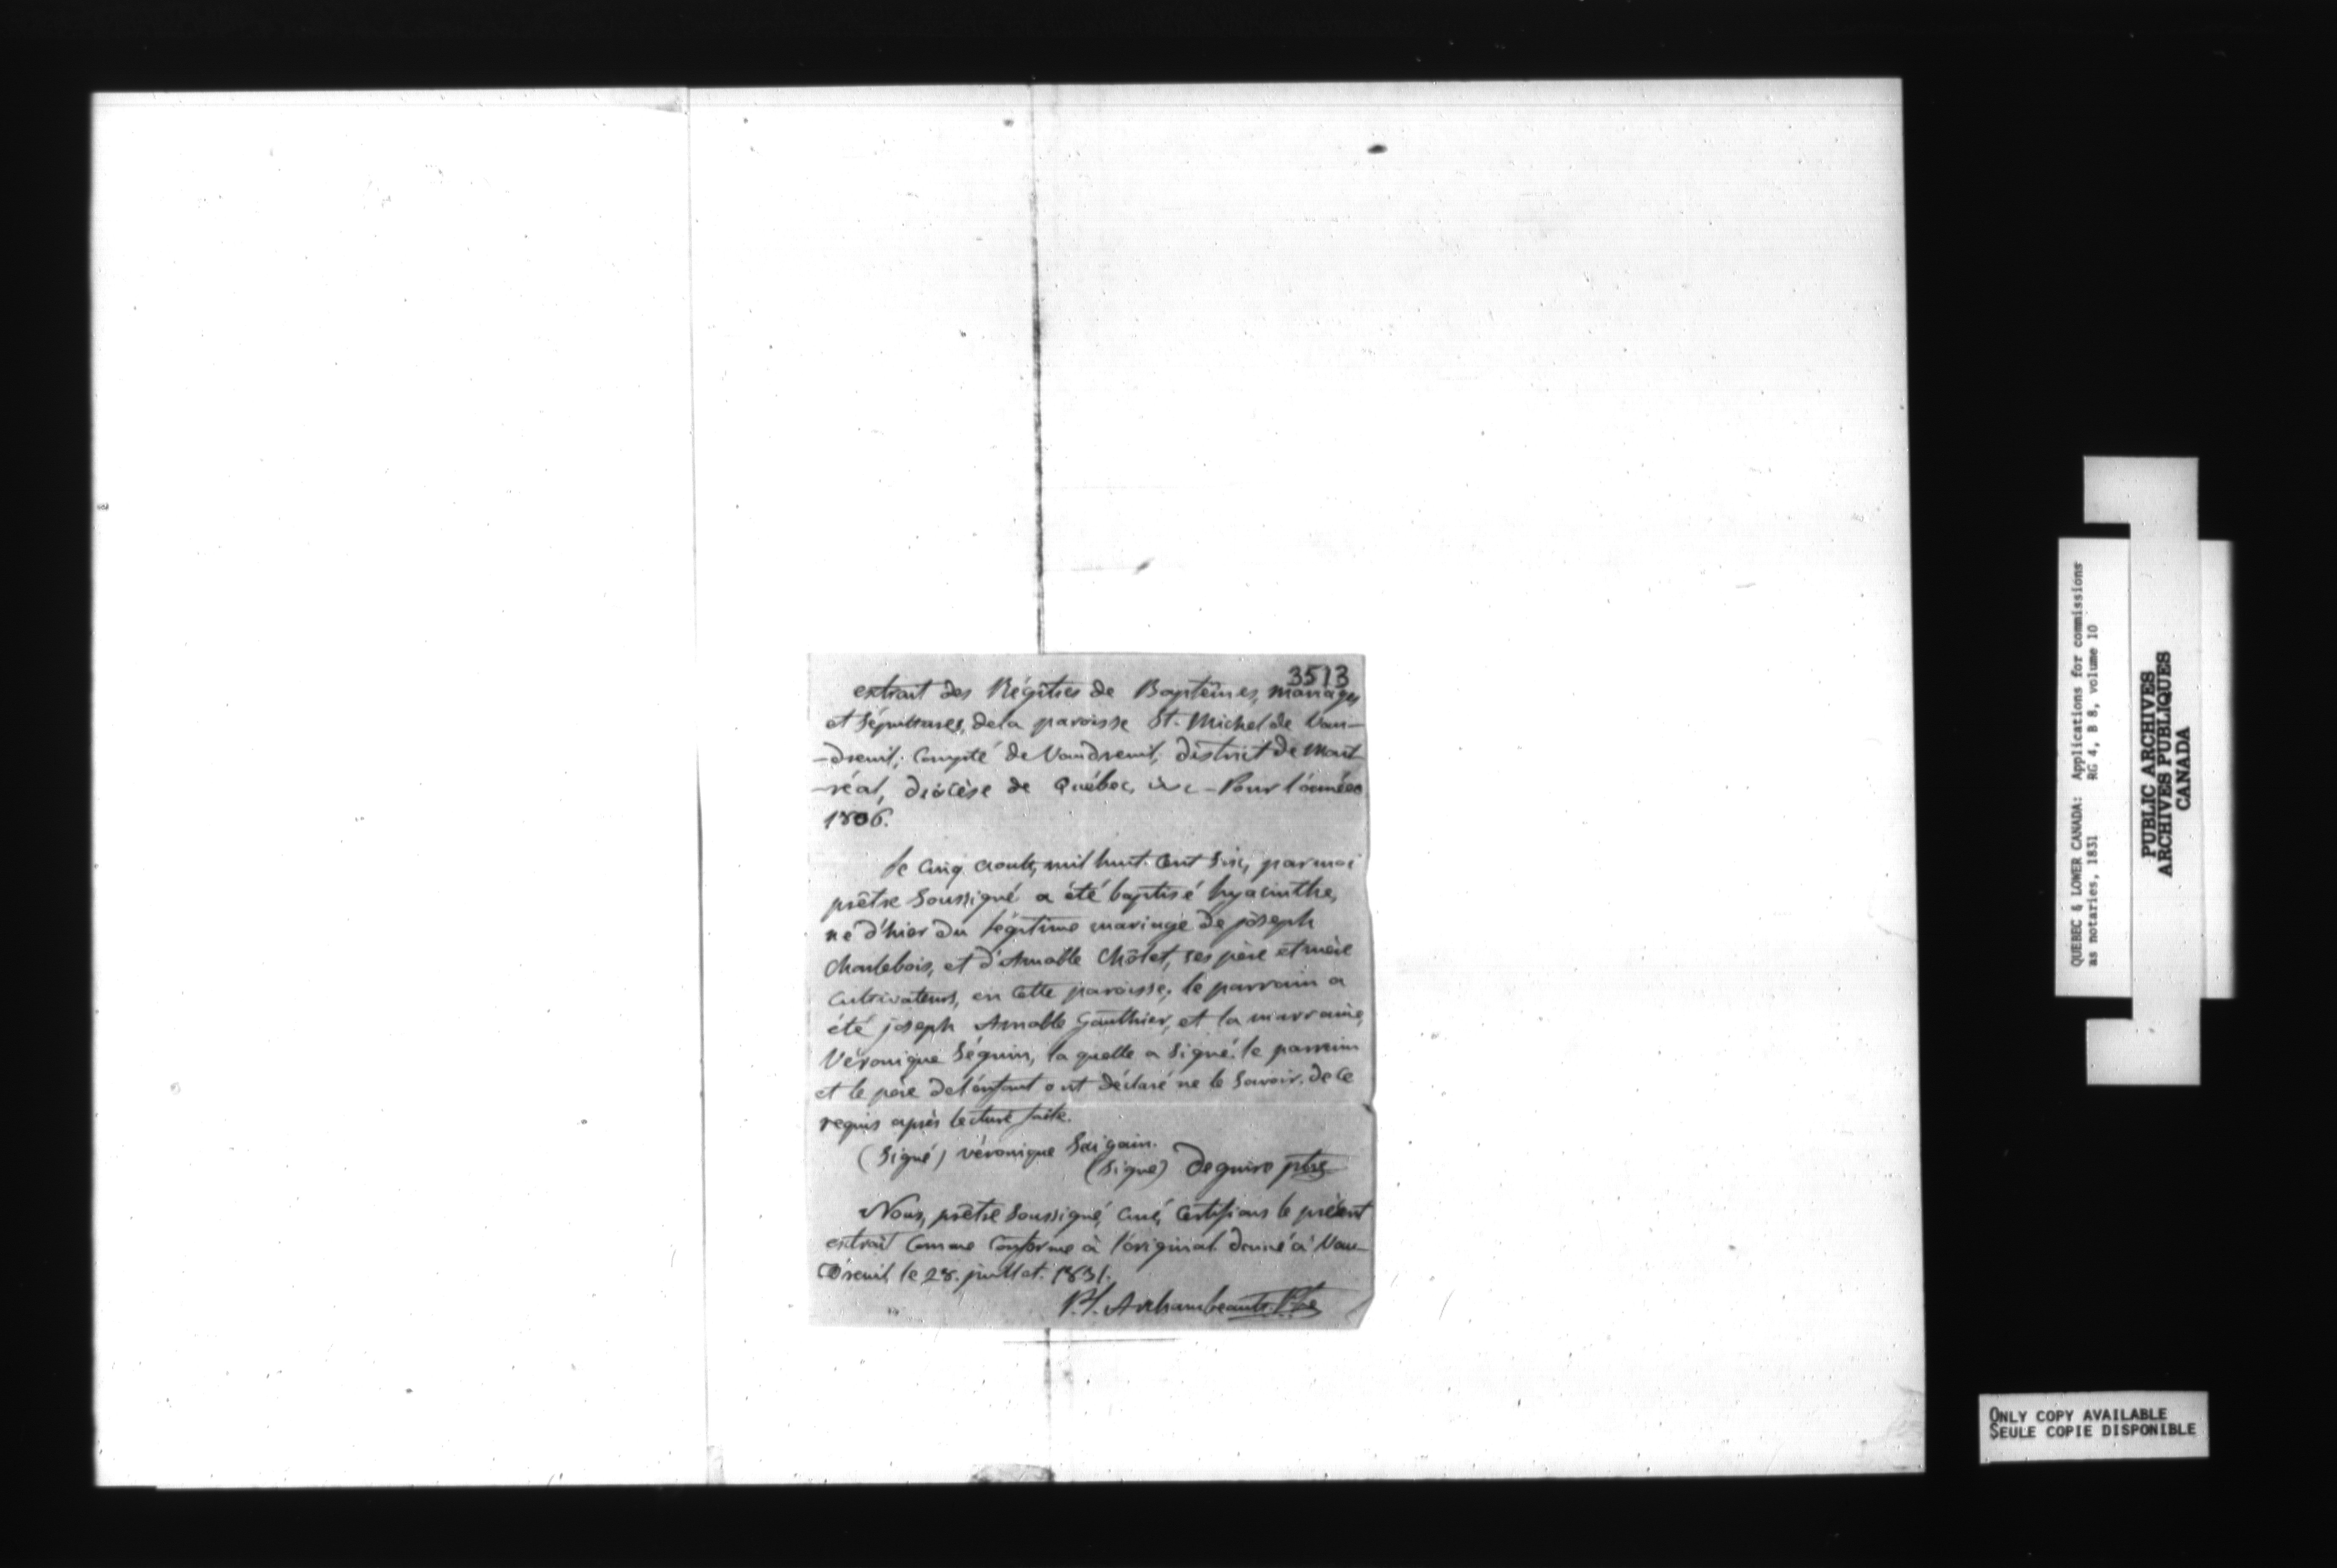 3513
extrait des Régîtres de Baptêmes, mariages
et Sépultures, dela paroisse St. Michel de Vau-
-dreuil, Compté de Vaudreuil, district de Mont
-réal, diocèse de Québec, &c - Pour l'année
1806.
le cinq août, mil huit cent Six, par moi
prêtre Soussigné a été baptisé hyacinthe,
né d'hier du légitime mariage de joseph
Charlebois, et d'Amable Chôlet, ses père et mère
Cultivateurs, en cette paroisse; le parrain a
été joseph Amable Gauthier, et la marraine,
Véronique Séguin, la quelle a Signé. le parrain
et le père del'énfant ont déclaré ne le Savoir. de ce
requis après lecture faite.
(Signé) véronique Saigain.
(Signé) Deguire ptre
Nous, prêtre Soussigné, curé, Certifions le présent
extrait Comme Conforme à l'original. donné à Vau-
dreuil le 28. juillet. 1831.
P. Archambeault Ptre
QUEBEC & LOWER CANADA: Applications for commissions
as notaries, 1831 RG 4, B 8, volume 10
PUBLIC ARCHIVES
ARCHIVES PUBLIQUES
CANADA
ONLY COPY AVAILABLE
SEULE COPIE DISPONIBLE